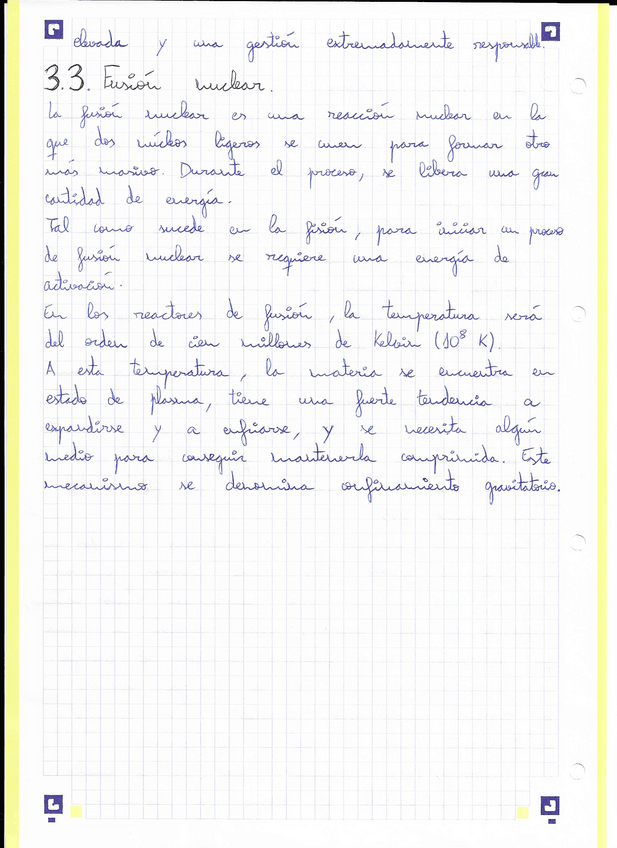 elevada y una gestión extremadamente responsable.
3.3. Fusión nuclear.
La fusión nuclear es una reacción nuclear en la
que dos núcleos ligeros se unen para formar otro
más masivo. Durante el proceso, se libera una gran
cantidad de energía.
Tal como sucede en la fisión, para iniciar un proceso
de fusión nuclear se requiere una energía de
activación.
En los reactores de fusión, la temperatura será
del orden de cien millones de Kelvin (10⁸ K).
A esta temperatura, la materia se encuentra en
estado de plasma, tiene una fuerte tendencia a
expandirse y a enfriarse, y se necesita algún
medio para conseguir mantenerla comprimida. Este
mecanismo se denomina confinamiento gravitatorio.